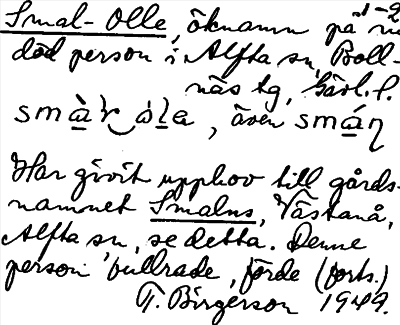 Smal-Olle, öknamn på nu
död person i Alfta sn, Boll-
näs tg, Gävl. l.
småṛ óla, även smáṇ
Har givit upphov till gårds-
namnet Smalns, Västanå,
Alfta sn, se detta. Denne
person bullrade, förde (forts.)
T. Birgerson 1949.